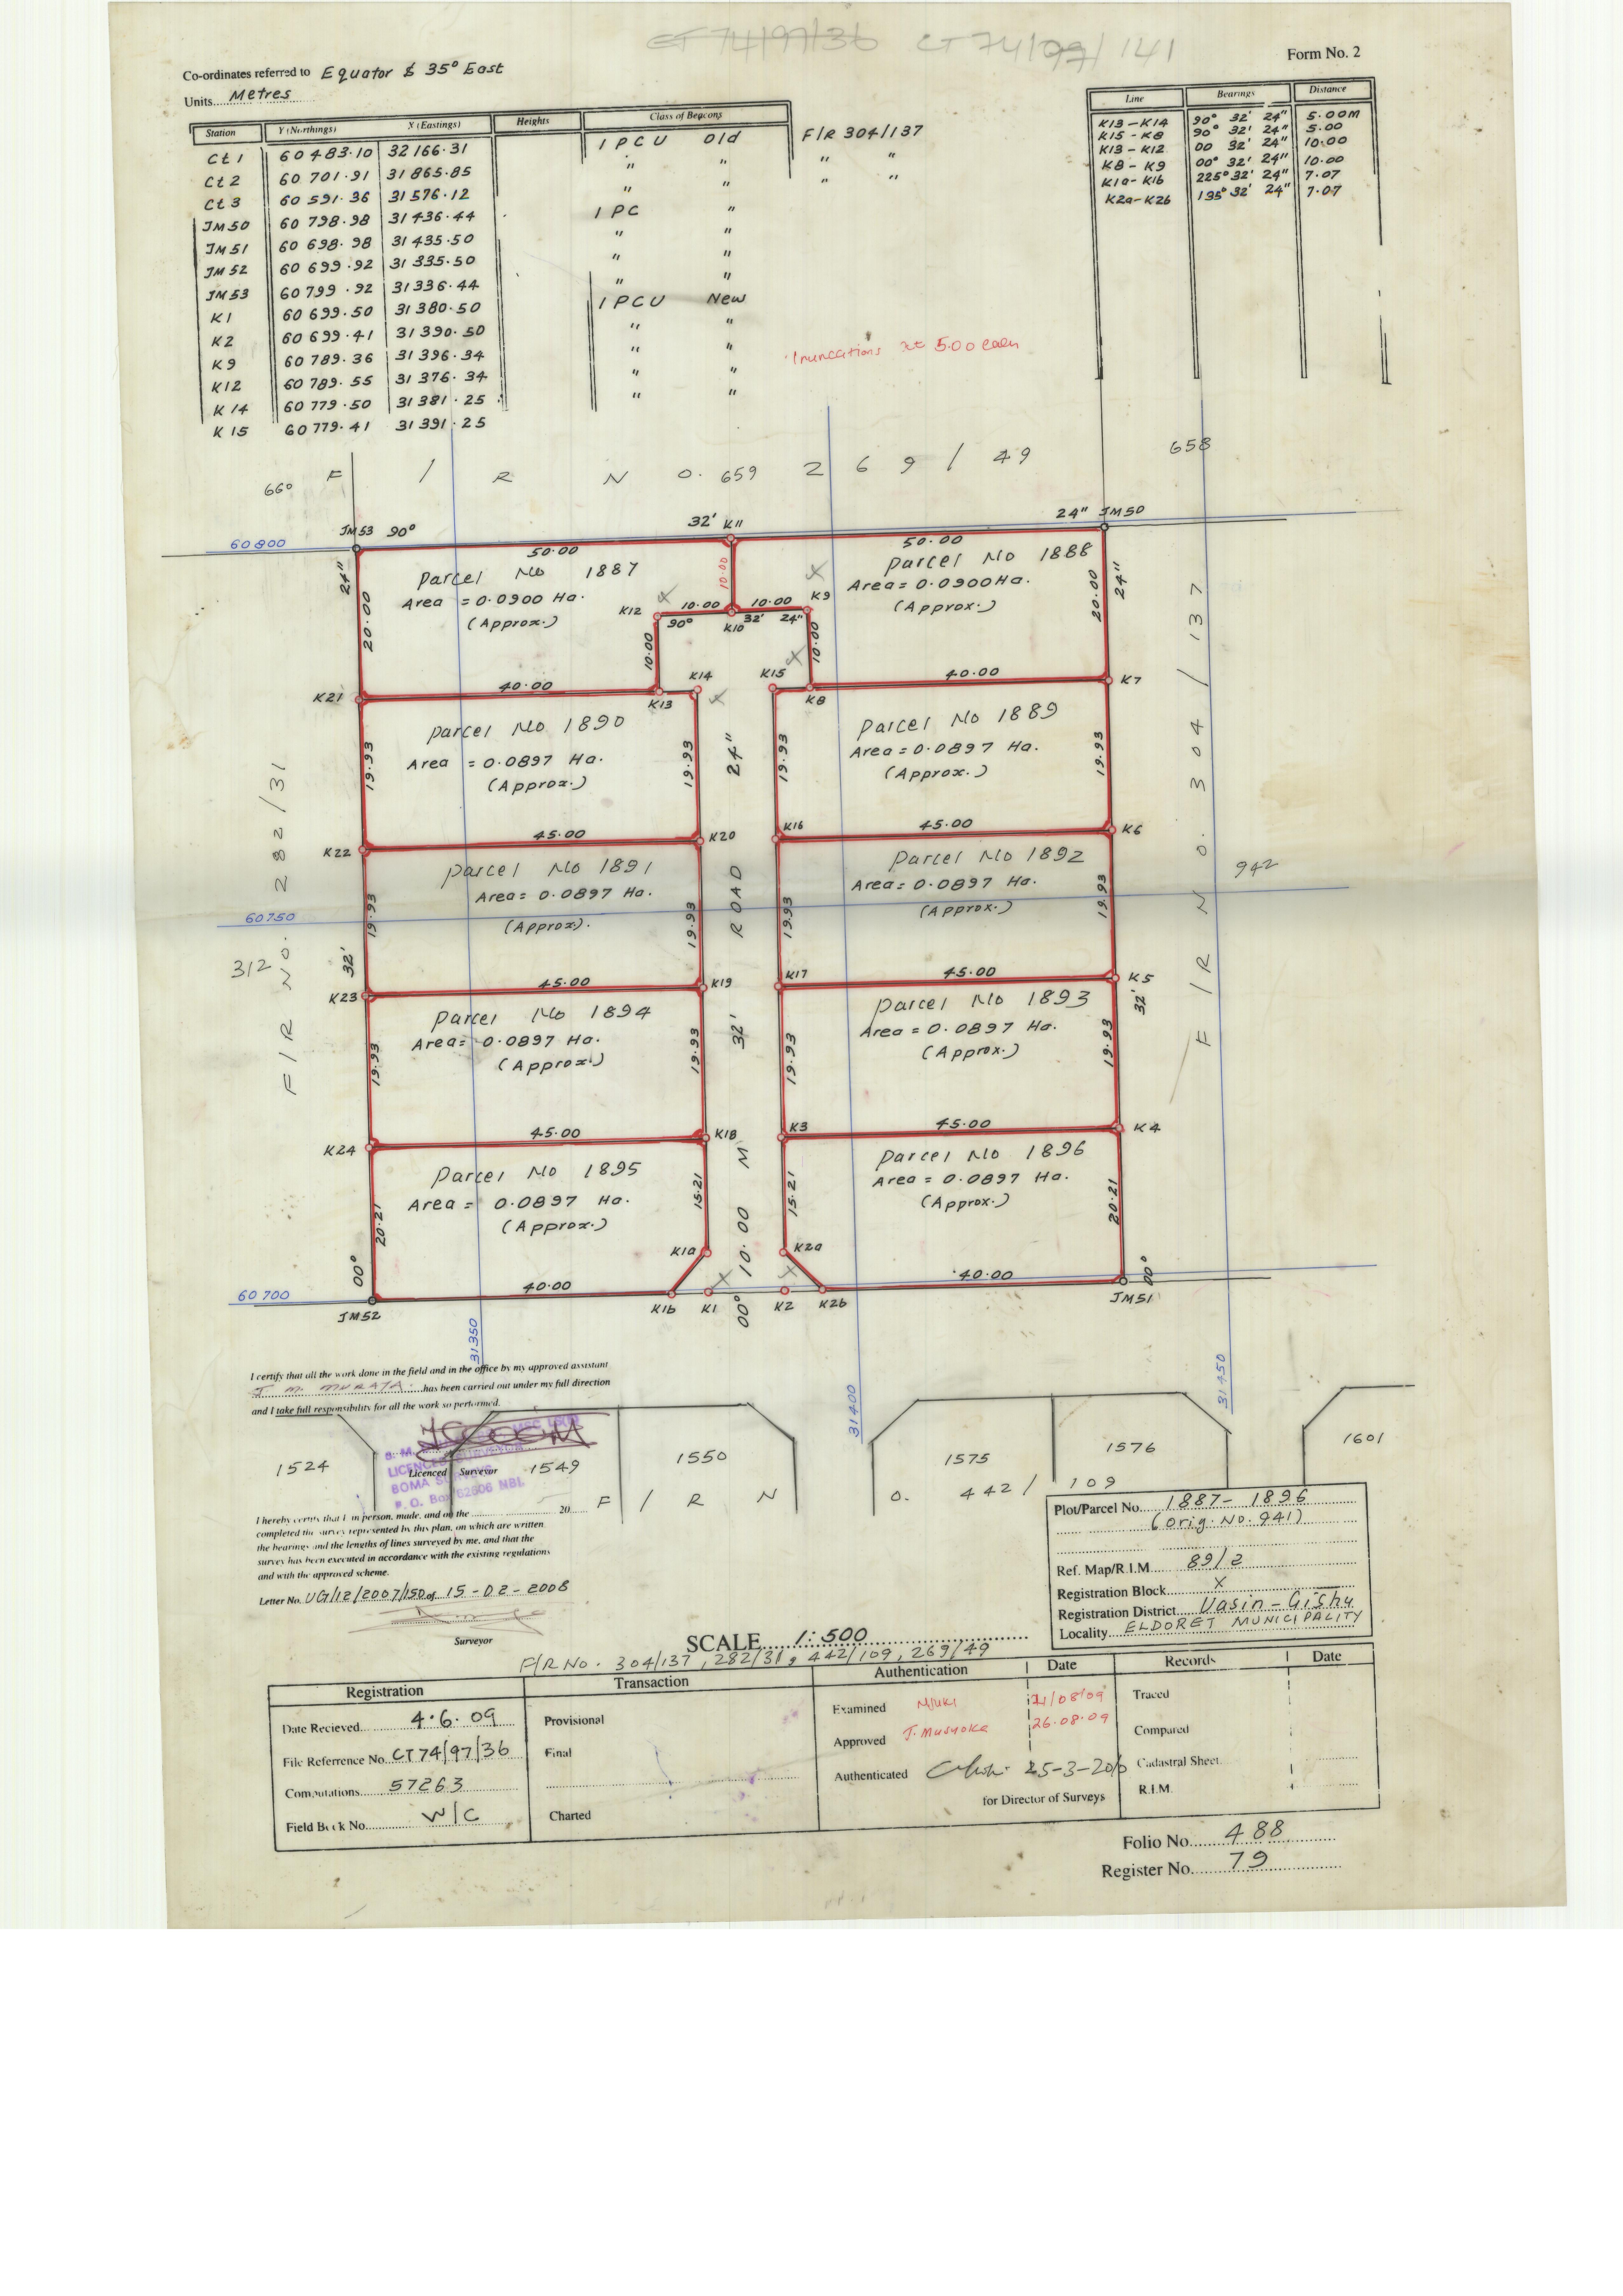 CT 74/97/36 CT 74/97/141
Form No. 2
Co-ordinates referred to Equator & 35° East
Units Metres
Station Y (Northings) X (Eastings) Heights Class of Beacons
Ct 1 60 483.10 32 166.31 IPCU Old F/R 304/137
Ct 2 60 701.91 31 865.85 " " " "
Ct 3 60 591.36 31 576.12 " " " "
JM 50 60 798.98 31 436.44 IPC "
JM 51 60 698.98 31 435.50 " "
JM 52 60 699.92 31 335.50 " "
JM 53 60 799.92 31 336.44 " "
K1 60 699.50 31 380.50 IPCU New
K2 60 699.41 31 390.50 " "
K9 60 789.36 31 396.34 " "
K12 60 789.55 31 376.34 " "
K14 60 779.50 31 381.25 " "
K15 60 779.41 31 391.25
Line Bearings Distance
K13 – K14 90° 32' 24" 5.00M
K15 – K8 90° 32' 24" 5.00
K13 – K12 00 32' 24" 10.00
K8 – K9 00° 32' 24" 10.00
K1a – K1b 225° 32' 24" 7.07
K2a – K2b 135° 32' 24" 7.07
Truncations at 5.00 each
660 F / R N O. 659 269/49 658
JM53 90° 32' K11 24" JM50
60 800
50.00 50.00
Parcel No 1887
Area = 0.0900 Ha.
(Approx.)
Parcel No 1888
Area = 0.0900 Ha.
(Approx.)
24" 20.00 10.00 20.00 24"
K12 10.00 10.00 K9
90° K10 32' 24"
10.00 10.00
K21 40.00 K13 K14 K15 K8 40.00 K7
Parcel No 1890
Area = 0.0897 Ha.
(Approx.)
Parcel No 1889
Area = 0.0897 Ha.
(Approx.)
19.93 19.93 24" 19.93 19.93
K22 45.00 K20 K16 45.00 K6
Parcel No 1891
Area = 0.0897 Ha.
(Approx).
Parcel No 1892
Area = 0.0897 Ha.
(Approx.)
19.93 19.93 ROAD 19.93 19.93
942
60750
312
F/R NO. 282/31
F/R NO. 304/137
32'
K23 45.00 K19 K17 45.00 K5
Parcel No 1894
Area = 0.0897 Ha.
(Approx.)
Parcel No 1893
Area = 0.0897 Ha.
(Approx.)
19.93 19.93 32' 19.93 19.93 32'
K24 45.00 K18 K3 45.00 K4
Parcel No 1895
Area = 0.0897 Ha.
(Approx.)
Parcel No 1896
Area = 0.0897 Ha.
(Approx.)
20.21 15.21 10.00 M 15.21 20.21
00° K1a K2a 00°
60 700
JM52 40.00 K1b K1 00° K2 K2b 40.00 JM51
31350 31400 31450
I certify that all the work done in the field and in the office by my approved assistant
J. M. MURAYA has been carried out under my full direction
and I take full responsibility for all the work so performed.
LICENCED SURVEYOR
BOMA SURVEYS
P. O. Box 62606 NBI.
Licenced Surveyor
1524 1549 1550 1575 1576 1601
F / R N O. 442/109
I hereby certify that I in person, made, and on the 20
completed the survey represented by this plan, on which are written
the bearings and the lengths of lines surveyed by me, and that the
survey has been executed in accordance with the existing regulations
and with the approved scheme.
Letter No. UG/12/2007/150 of 15-02-2008
Surveyor
Plot/Parcel No. 1887–1896
(Orig. No. 941)
Ref. Map/R.I.M. 89/2
Registration Block X
Registration District Uasin-Gishu
Locality ELDORET MUNICIPALITY
SCALE 1:500
F/R No. 304/137, 282/31, 442/109, 269/49
Registration Transaction Authentication Date Records Date
Date Recieved 4.6.09
File Referrence No. CT74/97/36
Computations 57263
Field Book No. W/C
Provisional
Final
Charted
Examined Njuki 21/08/09
Approved J. Musyoka 26.08.09
Authenticated 25-3-2010
for Director of Surveys
Traced
Compared
Cadastral Sheet
R.I.M.
Folio No. 488
Register No. 79